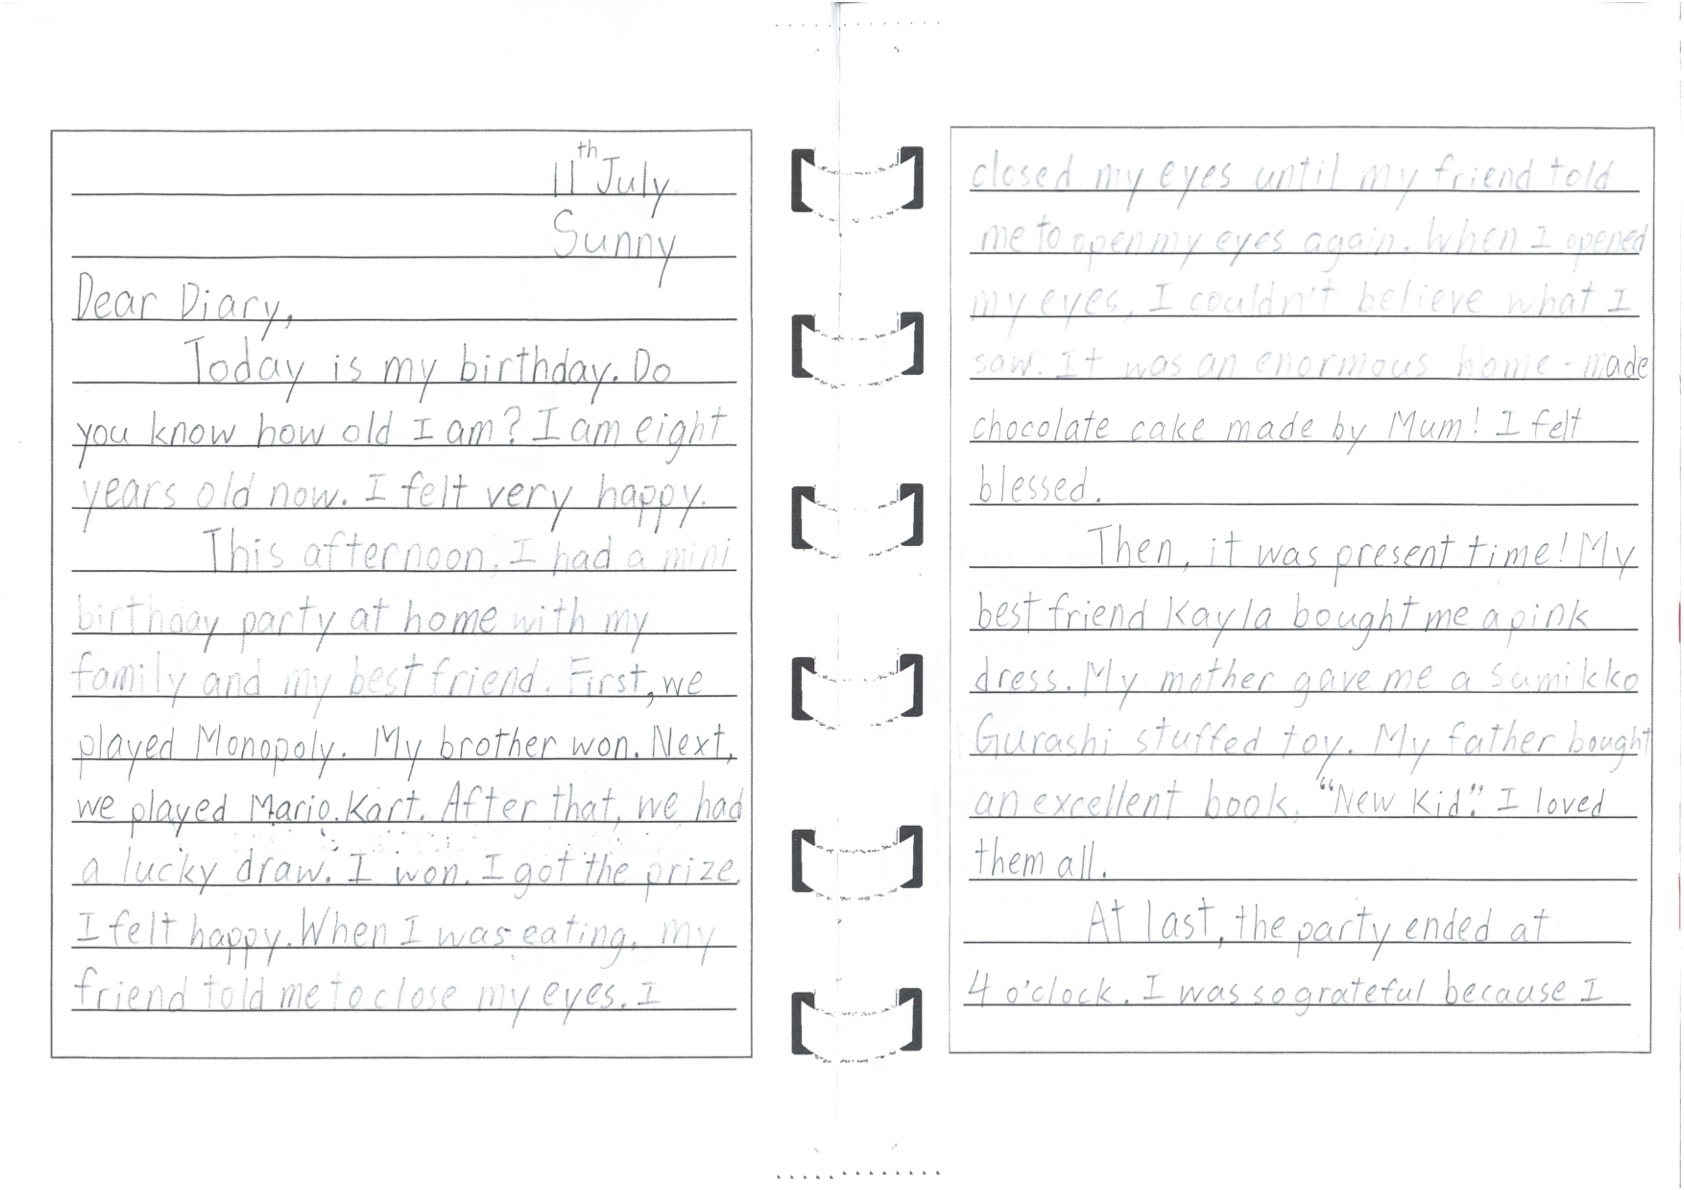 11th July
Sunny
Dear Diary,
Today is my birthday. Do
you know how old I am? I am eight
years old now. I felt very happy.
This afternoon, I had a mini
birthday party at home with my
family and my best friend. First, we
played Monopoly. My brother won. Next,
we played Mario Kart. After that, we had
a lucky draw. I won. I got the prize.
I felt happy. When I was eating, my
friend told me to close my eyes. I
closed my eyes until my friend told
me to open my eyes again. When I opened
my eyes, I couldn't believe what I
saw. It was an enormous home-made
chocolate cake made by Mum! I felt
blessed.
Then, it was present time! My
best friend Kayla bought me a pink
dress. My mother gave me a Sumikko
Gurashi stuffed toy. My father bought
an excellent book, “New Kid”. I loved
them all.
At last, the party ended at
4 o'clock. I was so grateful because I